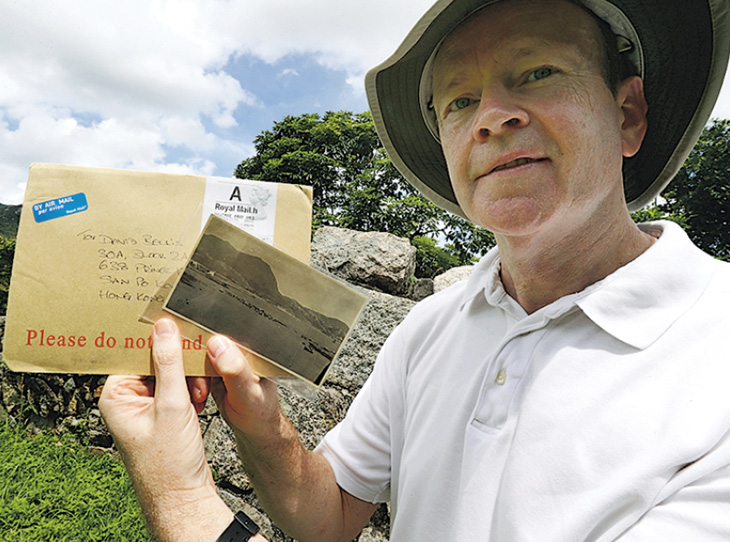 BY AIR MAIL
par avion
Royal Mail
A
Royal Mail.h
To: DAVID BELLIS
30A, BLOCK 2A
638 PRINCE
SAN PO
HONG KONG
Please do not